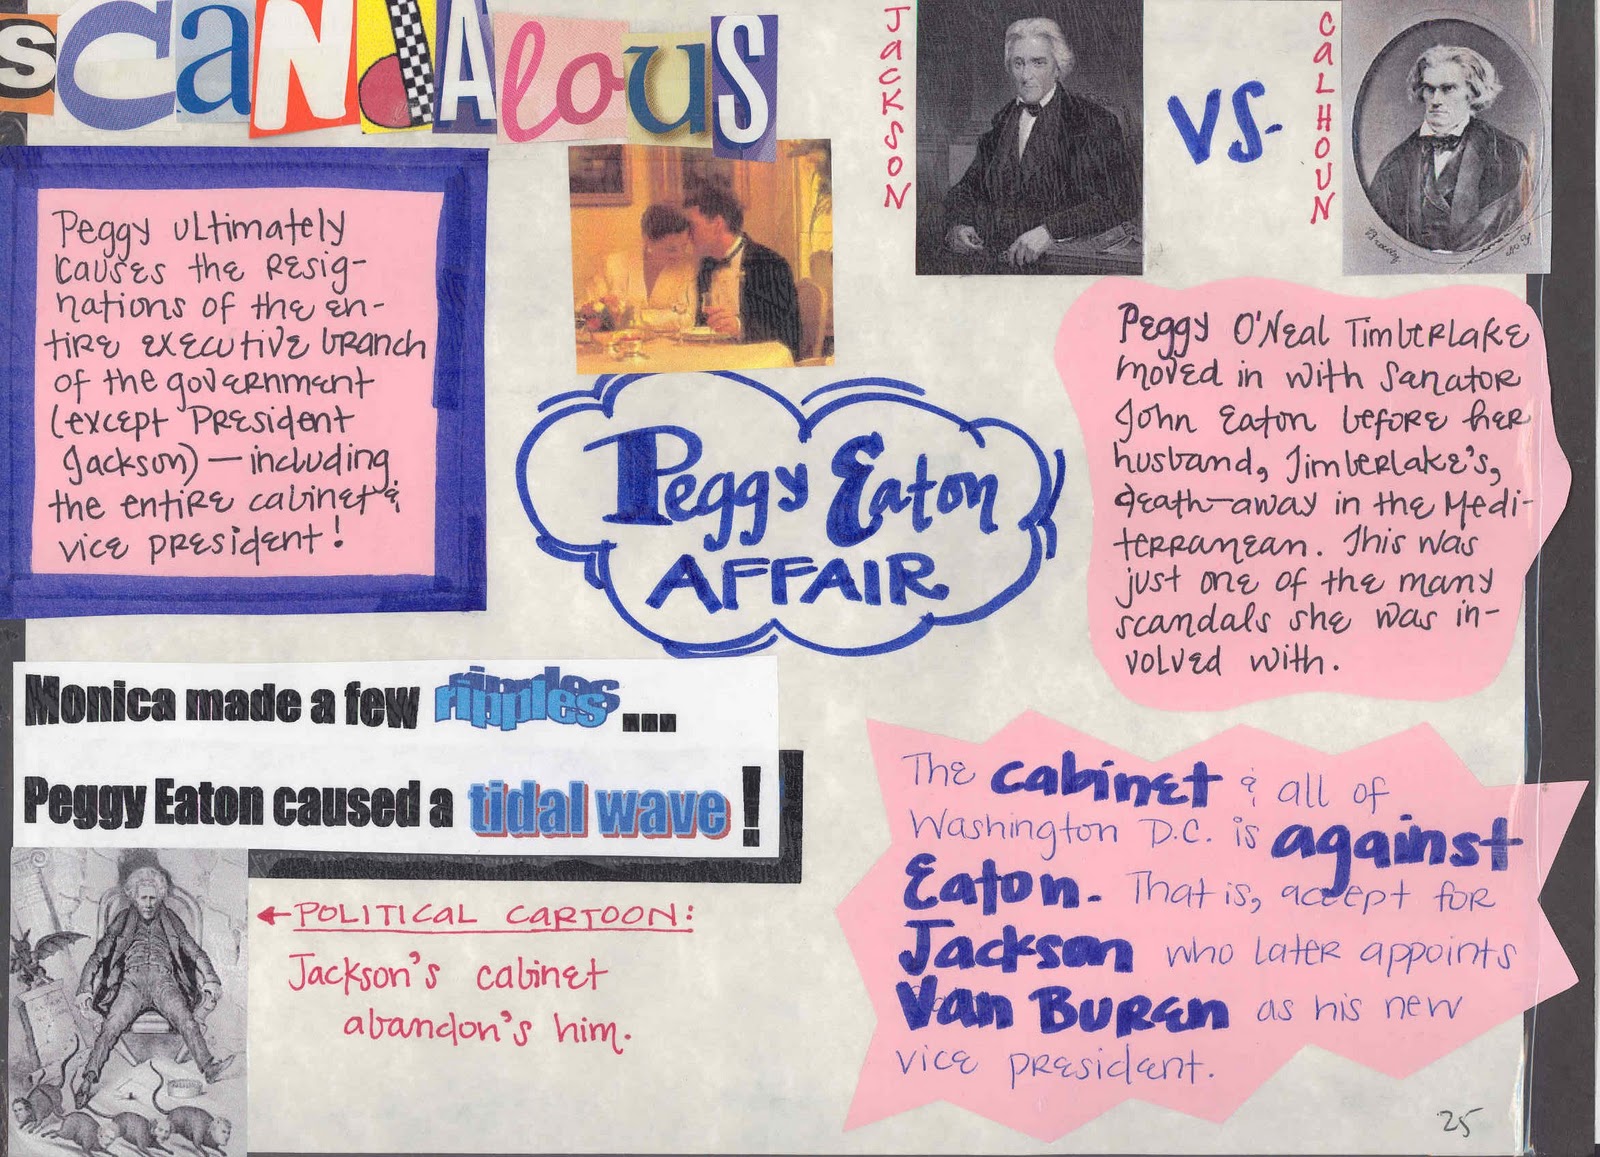 SCANdALOUS
JACKSON
VS.
CALHOUN
Peggy ultimately
causes the resig-
nations of the en-
tire executive branch
of the government
(except President
Jackson) — including
the entire cabinet &
vice president!
Peggy Eaton
AFFAIR
Peggy O'Neal Timberlake
moved in with Sanator
John Eaton before her
husband, Timberlake's,
death—away in the Medi-
terranean. This was
just one of the many
scandals she was in-
volved with.
Monica made a few ripples...
Peggy Eaton caused a tidal wave!
←POLITICAL CARTOON:
Jackson's cabinet
abandon's him.
The cabinet & all of
Washington D.C. is against
Eaton. That is, accept for
Jackson who later appoints
Van Buren as his new
vice president.
Brady
N.Y.
25